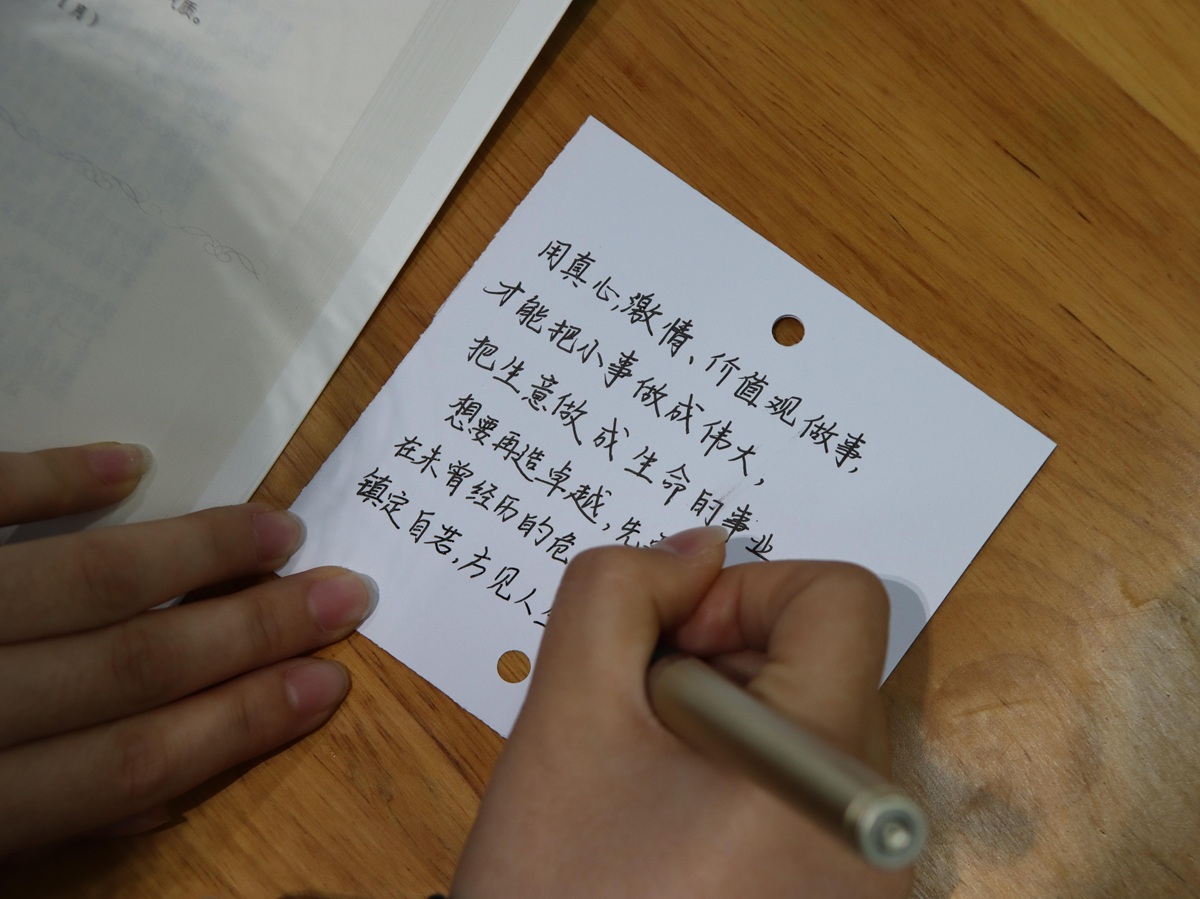 质。
（真）
用真心,激情、价值观做事,
才能把小事做成伟大,
把生意做成生命的事业
想要再造卓越,先
在未曾经历的危
镇定自若,方见人